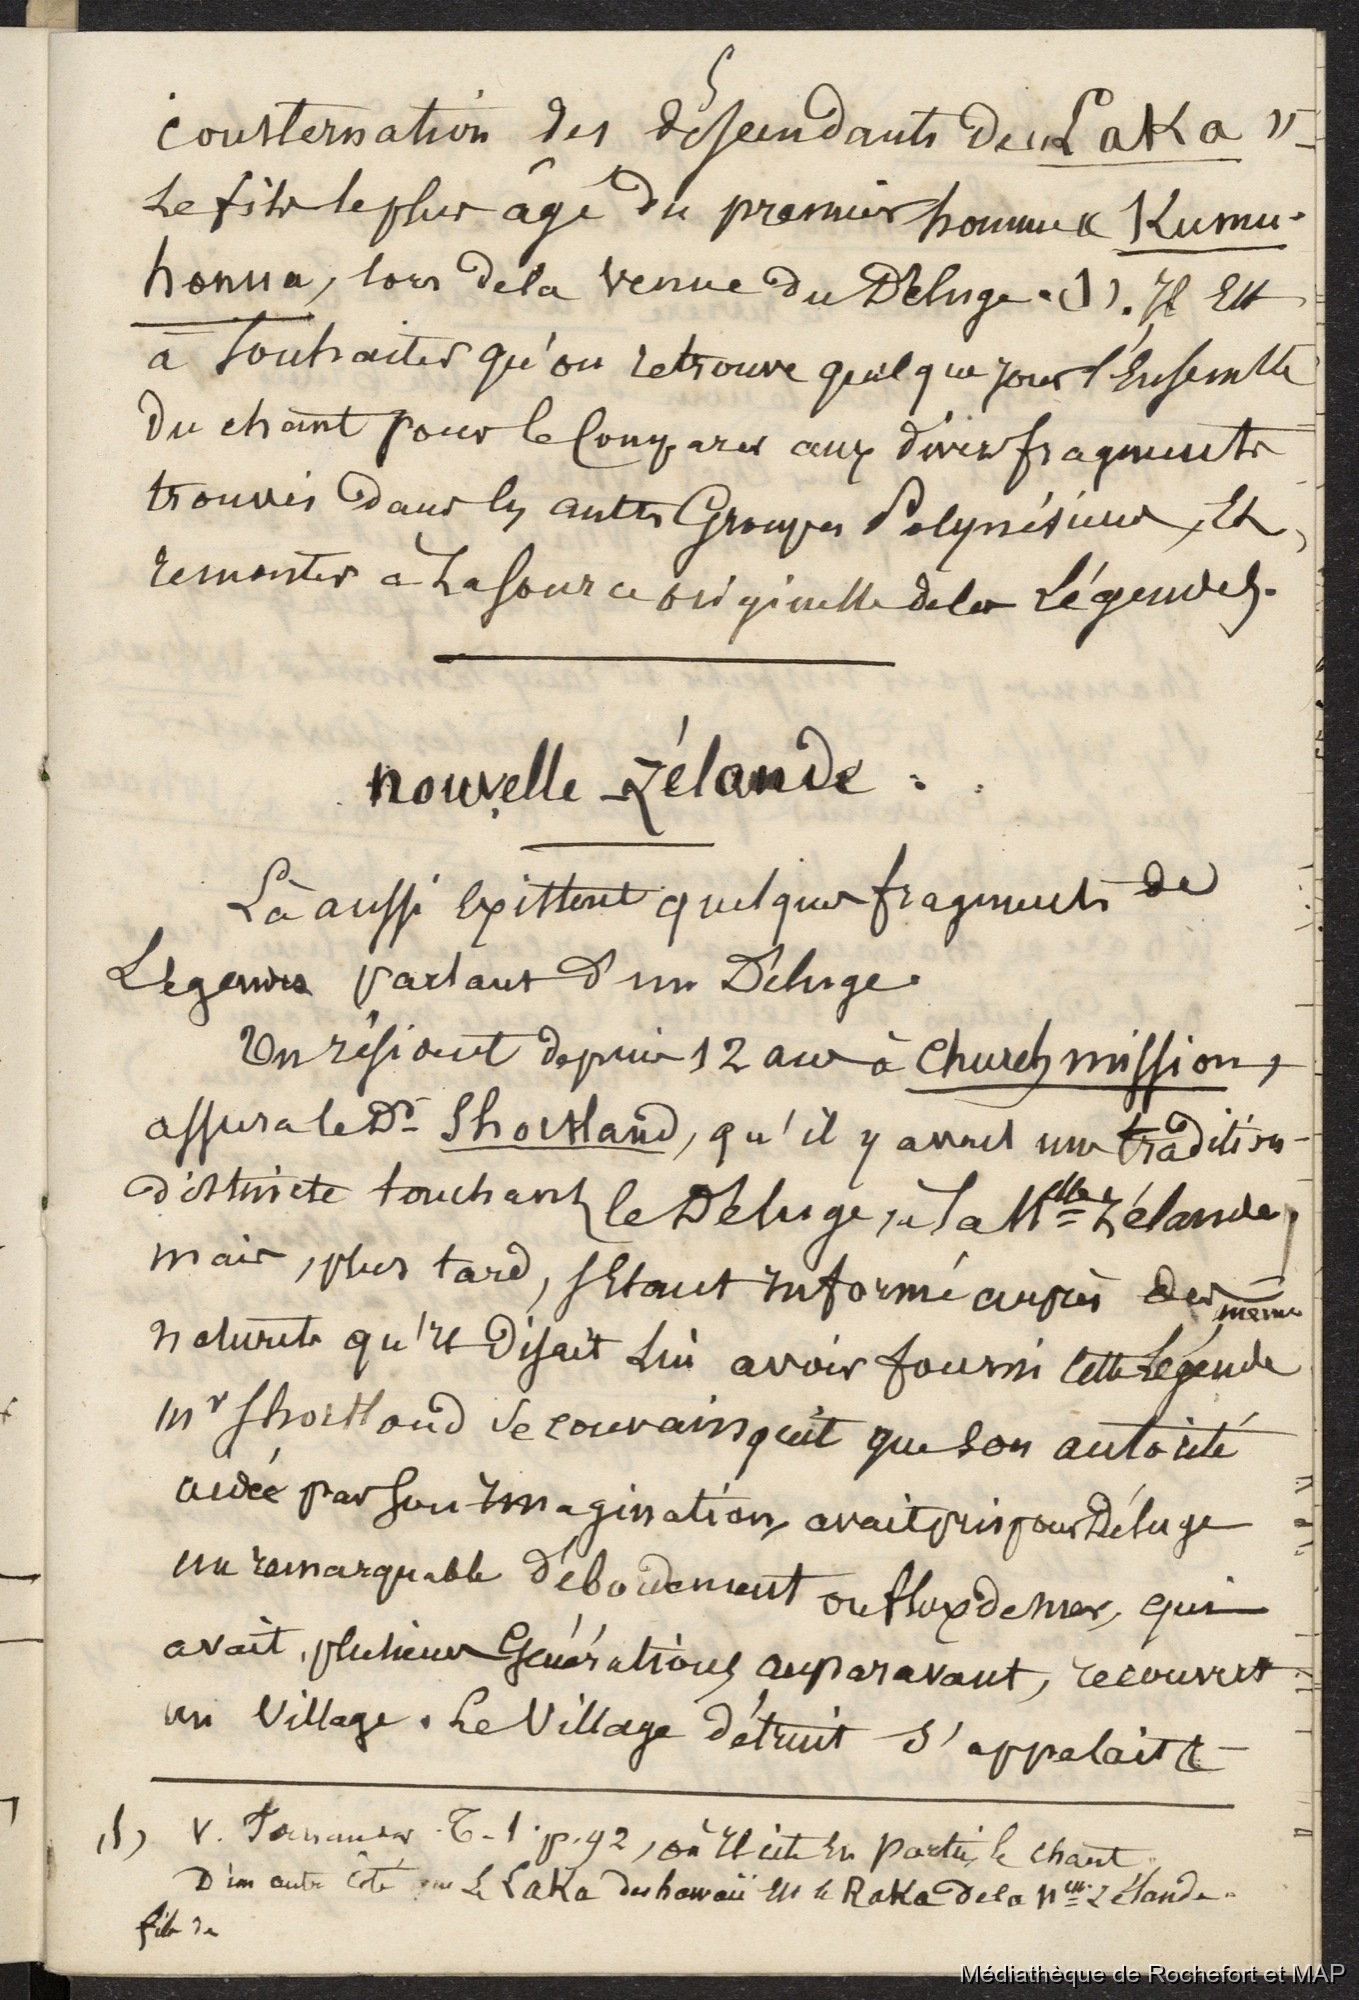 consternation des descendants de « Laka »
le fils le plus âgé du premier homme « Kumu-
honua, lors de la venue du Déluge. (1). Il est
à souhaiter qu'on retrouve quelque jour l'ensemble
du chant pour le comparer aux divers fragments
trouvés dans les autres Groupes Polynésiens, et
remonter à la source originelle de les Légendes.
nouvelle Zélande.
Là aussi existent quelques fragments de
Légendes parlant d'un Déluge.
Un résident depuis 12 ans à Church mission,
assura le Dr Shortland, qu'il y avait une tradition
distincte touchant le Déluge, à la Nlle Zélande,
mais, plus tard, s'étant informé auprès des même
naturels qu'il disait lui avoir fourni cette Légende
Mr Shortland se convainquit que son autorité
aidée par son imagination, avait pris pour Déluge
un remarquable débordement ou flux de mer, qui
avait, plusieurs Générations auparavant, recouvert
un Village. Le Village détruit s'appelait
(1) V. Fornander T. 1. p. 92, où il cite en partie le chant.
D'un autre côté le Laka des hawaii est le Raka de la Nlle Zélande.
fils de
Médiathèque de Rochefort et MAP